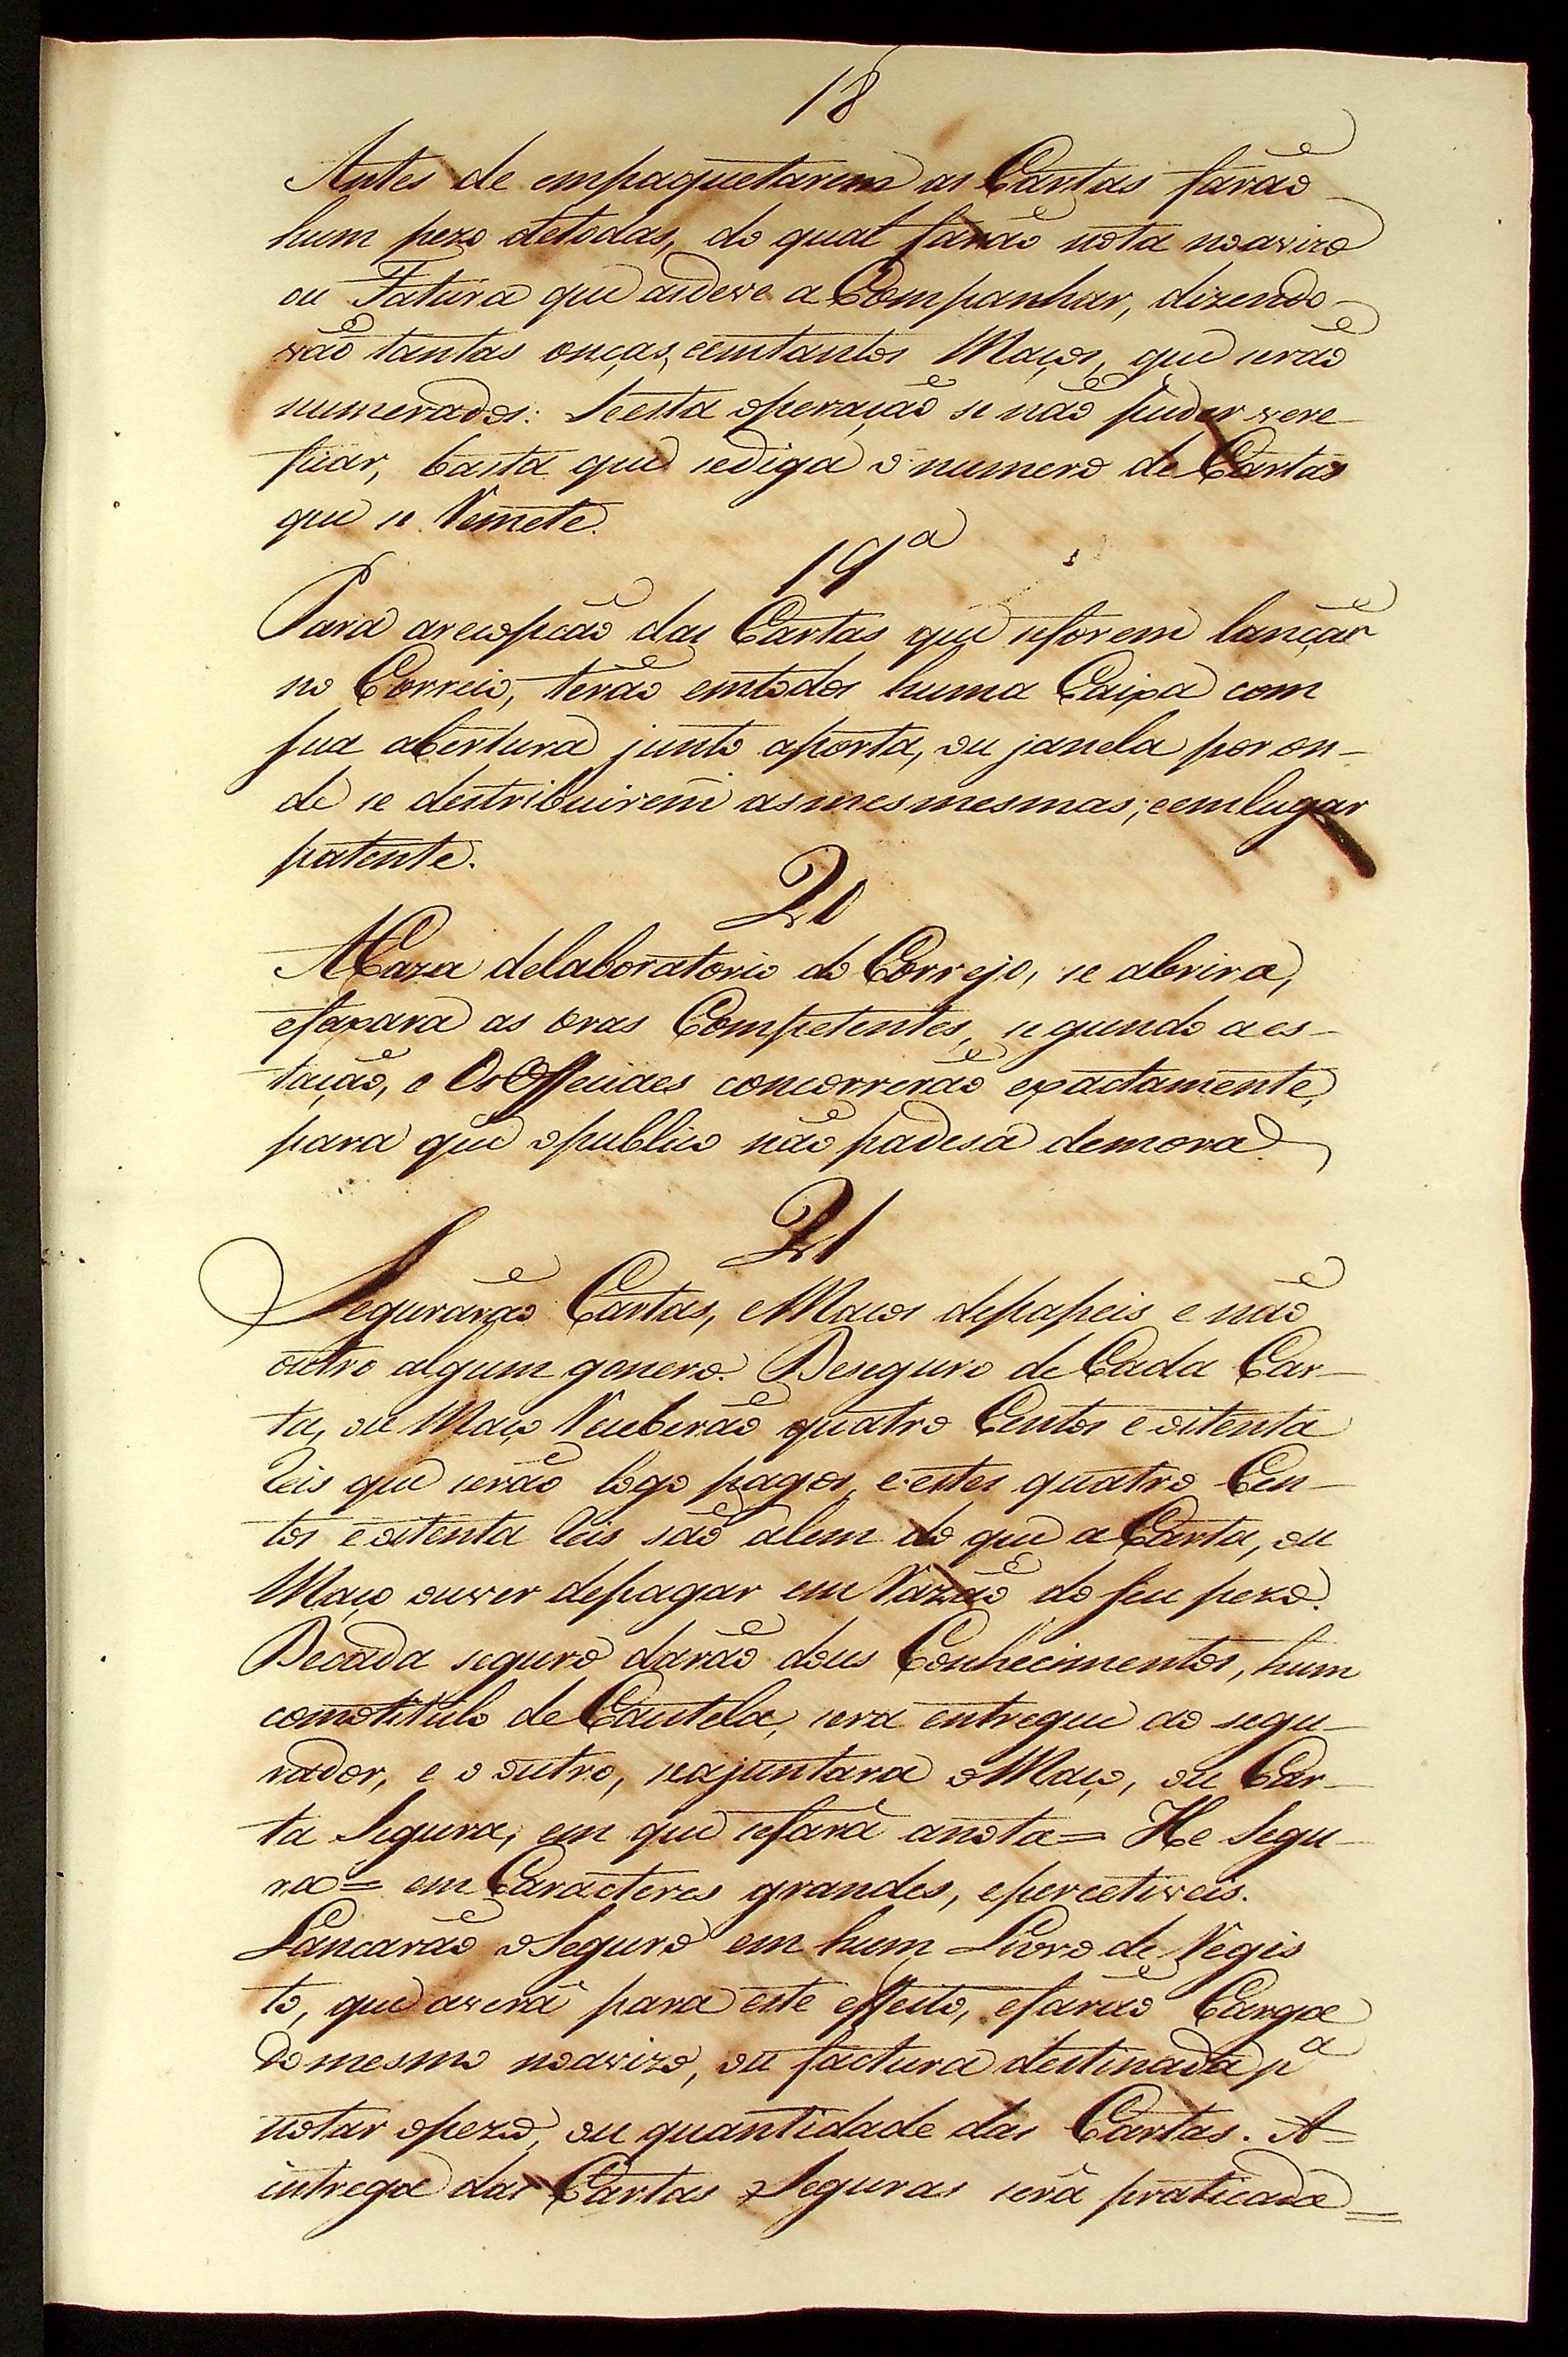 18
Antes de empaquetarem as Cartas farão
hum pezo detodas, do qual farão nota noavizo
ou Fatura que asdeve a Companhar, dizendo-
vão tantas onças, eemtantos Maços, que serão
numerados: Seesta operação se não puder vere-
ficar, basta que sediga o numero de Cartas
que se Remete.
19ª
Para arecepcão das Cartas que seforem lançar
no Correio, terão emtodos huma Caixa com
sua abertura junto aporta, ou janela por on-
de se destribuirem asmesmesmas; eemlugar
patente.
20
ACaza delaboratorio do Correjo, se abrira,
efaxara as oras Competentes, segundo aes-
tação, e OsOfficiaes concorrerão exactamente,
para que opublico não padesa demora.
21
Segurarão Cartas, eMaços depapeis e não
outro algum genero. Deseguro deCada Car-
ta, ou Maço Receberão quatro Centos e oitenta
Reis que serão logo pagos, e estes quatro Cen-
tos e oitenta Reis são alem do que aCarta, ou
Maço ouver depagar em Razão do seu pezo.
Decada seguro darão dous Conhecimentos, hum
comotitulo deCautela, sera entregue ao segu-
rador, e o outro, seajuntara oMaço, ou Car-
ta Segura, em que sefará anota= He Segu-
ra= em Caracteres grandes, eperceetiveis.
Lancarão oSeguro em hum Livro de Regis
to, que averá para este effeito, efarão Carga
do mesmo noavizo, ou factura destinada pª
notar opezo, ou quantidade das Cartas. A=
intrega das Cartas Seguras será praticada=